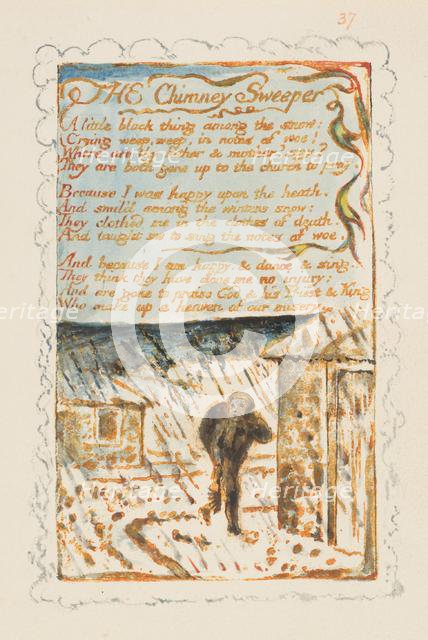 37
THE Chimney Sweeper
A little black thing among the snow:
Crying weep, weep, in notes of woe!
Where are thy father & mother? say?
They are both gone up to the church to pray.
Because I was happy upon the heath,
And smil'd among the winters snow:
They clothed me in the clothes of death,
And taught me to sing the notes of woe.
And because I am happy, & dance & sing,
They think they have done me no injury:
And are gone to praise God & his Priest & King
Who make up a heaven of our misery.
Heritage
Heritage
Heritage
Heritage
Heritage
Heritage